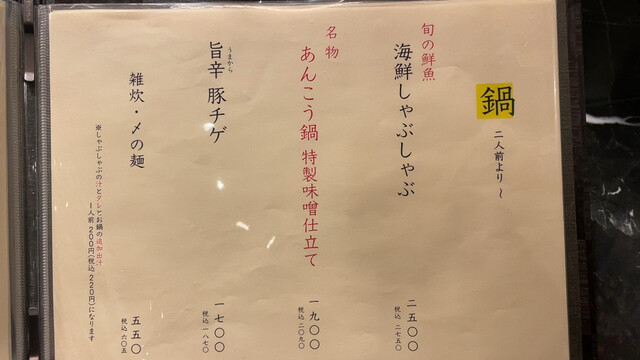 鍋
二人前より~
旬の鮮魚
海鮮しゃぶしゃぶ
二五〇〇
税込 二七五〇
名物
あんこう鍋 特製味噌仕立て
一九〇〇
税込 二〇九〇
うまから
旨辛 豚チゲ
一七〇〇
税込 一八七〇
雑炊・〆の麺
五五〇
税込 六〇五
※しゃぶしゃぶの汁とタレとお鍋の追加出汁
1人前 200円(税込 220円)になります